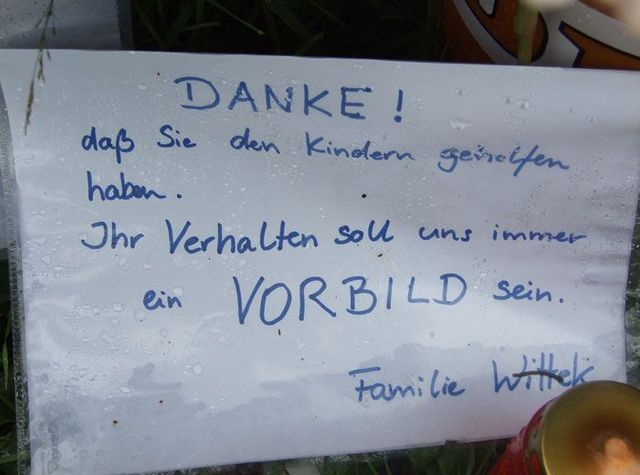 DANKE!
daß Sie den Kindern geholfen
haben.
Ihr Verhalten soll uns immer
ein VORBILD sein.
Familie Wittek